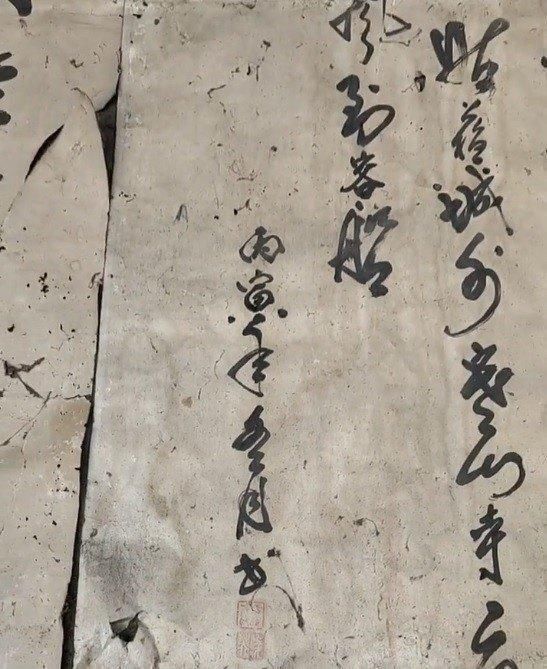 姑蘇城外寒山寺
到客船
丙寅年冬月书